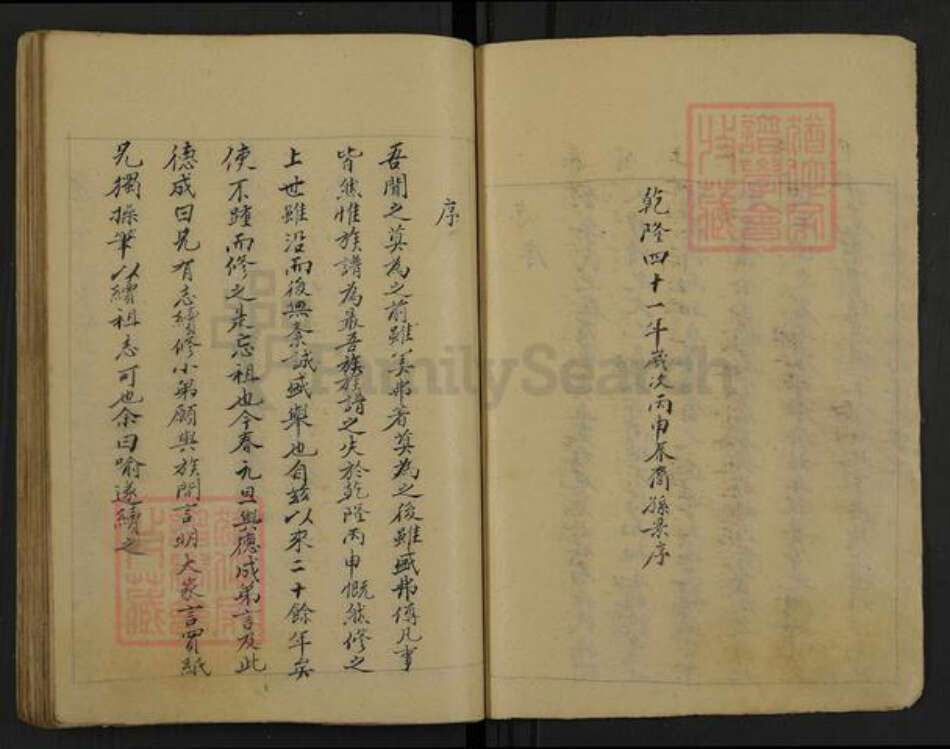 乾隆四十一年歲次丙申春裔孫景序
序
吾聞之莫為之前雖美弗著莫為之後雖盛弗傳凡事
皆然惟族譜為最吾族族譜之失於乾隆丙申慨然修之
上世雖没而後無紊誠盛舉也自兹以來二十餘年矣
使不踵而修之是忘祖也今春元旦與德成弟言及此
德成曰兄有志續修小弟願與族間言明大家言買紙
兄獨操筆以續祖志可也余曰喻遂續之
FamilySearch